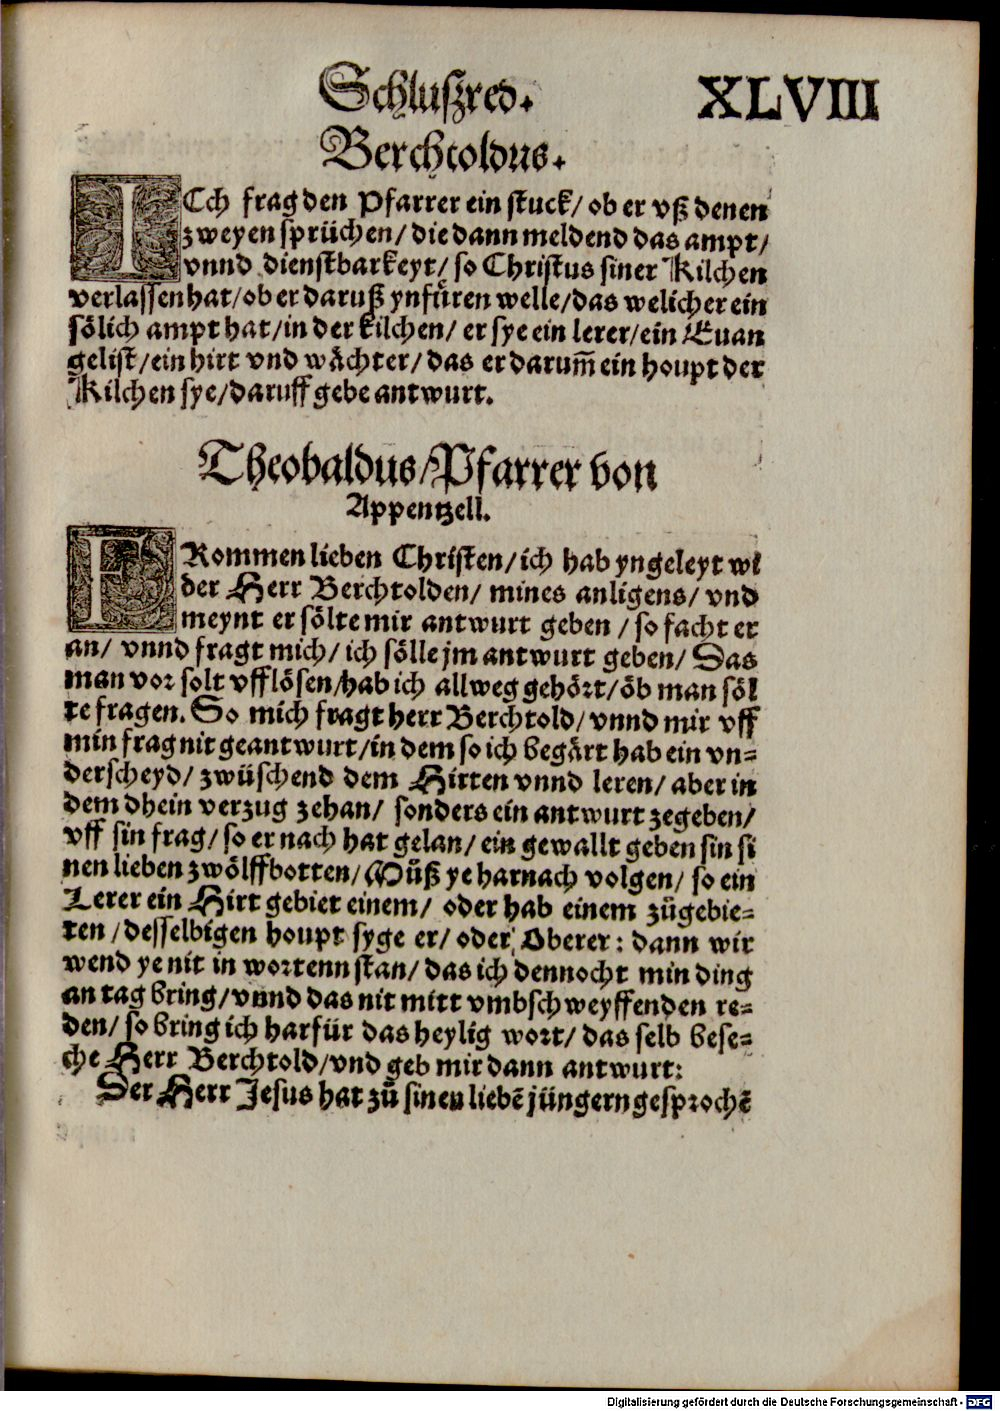 Schlußred.
XLVIII
Berchtoldus.
ICh frag den Pfarrer ein stuck/ ob er vß denen
zweyen sprüchen/ die dann meldend das ampt/
vnnd dienstbarkeyt/ so Christus siner Kilchen
verlassen hat/ ob er daruß ynfüren welle/ das welicher ein
sölich ampt hat/ in der kilchen/ er sye ein lerer/ ein Euan
gelist/ ein hirt vnd wächter/ das er darum̄ ein houpt der
Kilchen sye/ daruff gebe antwurt.
Theobaldus/ Pfarrer von
Appentzell.
FRommen lieben Christen/ ich hab yngeleyt wi
der Herr Berchtolden/ mines anligens/ vnd
meynt er sölte mir antwurt geben / so facht er
an/ vnnd fragt mich/ ich sölle jm antwurt geben/ Das
man vor solt vfflösen/ hab ich allweg gehört/ öb man söl
te fragen. So mich fragt herr Berchtold/ vnnd mir vff
min frag nit geantwurt/ in dem so ich begärt hab ein vn-
derscheyd/ zwüschend dem Hirten vnnd leren/ aber in
dem dhein verzug zehan/ sonders ein antwurt zegeben/
vff sin frag/ so er nach hat gelan/ ein gewallt geben sin si
nen lieben zwölffbotten/ Müß ye harnach volgen/ so ein
Lerer ein Hirt gebiet einem/ oder hab einem zůgebie-
ten/ desselbigen houpt syge er/ oder Oberer: dann wir
wend ye nit in wortenn stan/ das ich dennocht min ding
an tag bring/ vnnd das nit mitt vmbschweyffenden re-
den/ so bring ich harfür das heylig wort/ das selb bese-
che Herr Berchtold/ vnd geb mir dann antwurt:
Der Herr Jesus hat zů sinen liebē jüngern gesprochē
Digitalisierung gefördert durch die Deutsche Forschungsgemeinschaft - DFG